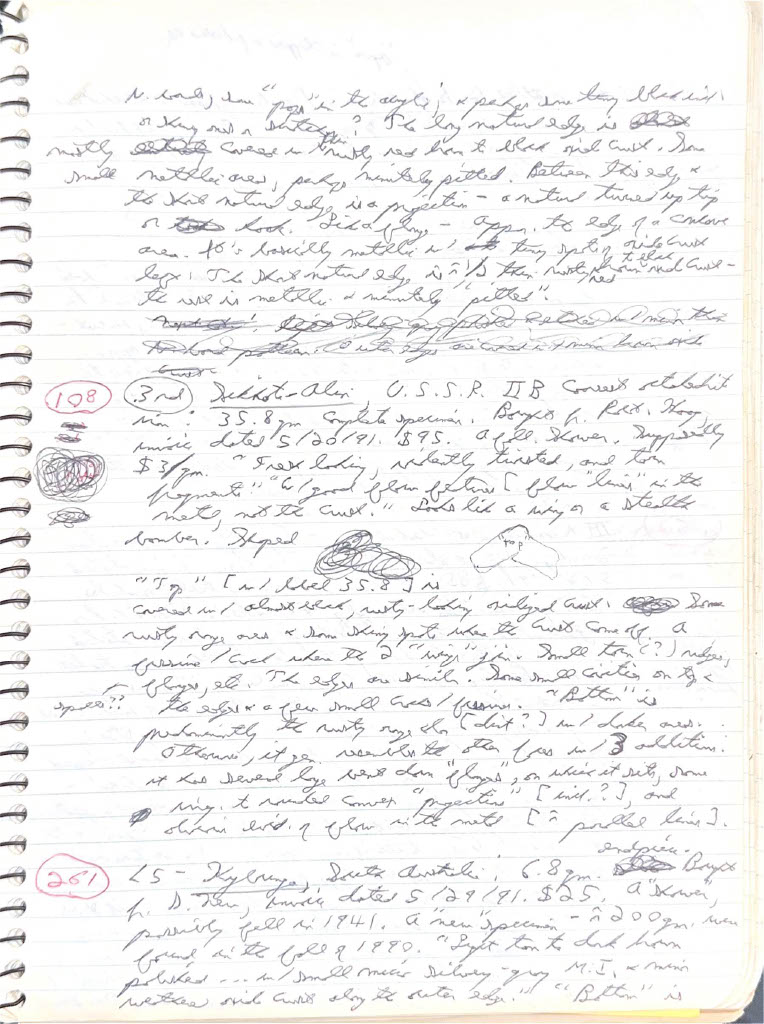 N. bands, some "pops" in the acrylic, & perhaps some tiny black incl.
or shiny ones The long natural edge is
mostly covered in rusty red brown to black oxid crust. Some
small metallic areas, perhaps minutely pitted. Between this edge &
the short natural edge is a projection - a natural turned up tip
or hook. Like a flange - appox. the edge of a concave
area. It's basically metallic w/ tiny spots of oxide crust
The short natural edge is ~ 1/2 then rusty brown to black oxid crust -
red
the rest is metallic & minutely "pitted".
108 3rd Sikhote-Alin, U.S.S.R. IIB Coarsest octahedrite
iron: 35.8 gm Complete specimen. Bought fr. Robt. Haag,
invoice dated 5/20/91. $95. A fell. Shower. Supposedly
$3/gm. "Fresh looking, violently twisted, and torn
fragments." "W/ good flow features [flow "lines" in the
metal, not the crust." Looks like a wing or a stealth
bomber. Shaped
"Top"
"Top" [w/ label 35.8] is
covered w/ almost black, rusty-looking oxidized crust. Some
rusty orange areas & some shiny spots where the crust came off. A
fissure/crack where the 2 "wings" join. Small torn (?) ridges,
flanges, etc. The edges are similar. Some small cavities on top &
spalls?? the edges & a few small cracks/fissures. "Bottom" is
predominantly the rusty orange [dirt?] w/ darker areas.
Otherwise, it gen. resembles the other face w/ 3 additions:
it has several large bent down "flanges", on which it sits, some
to rounded convex "projections" [incl.?], and
obvious evid. of flow in the metal [~ parallel lines].
endpiece.
261 L5 - Kybunga, South Australia; 6.8 gm. Bought
fr. D. New, invoice dated 5/29/91. $25. A "Shower",
possibly fell in 1941. A "new" specimen - ~ 200 gm. was
found in the fall of 1990. "Light tan to dark brown
polished ... w/ small micro silvery-gray M.I. & minor
weathered oxid crust along the outer edge." "Bottom" is